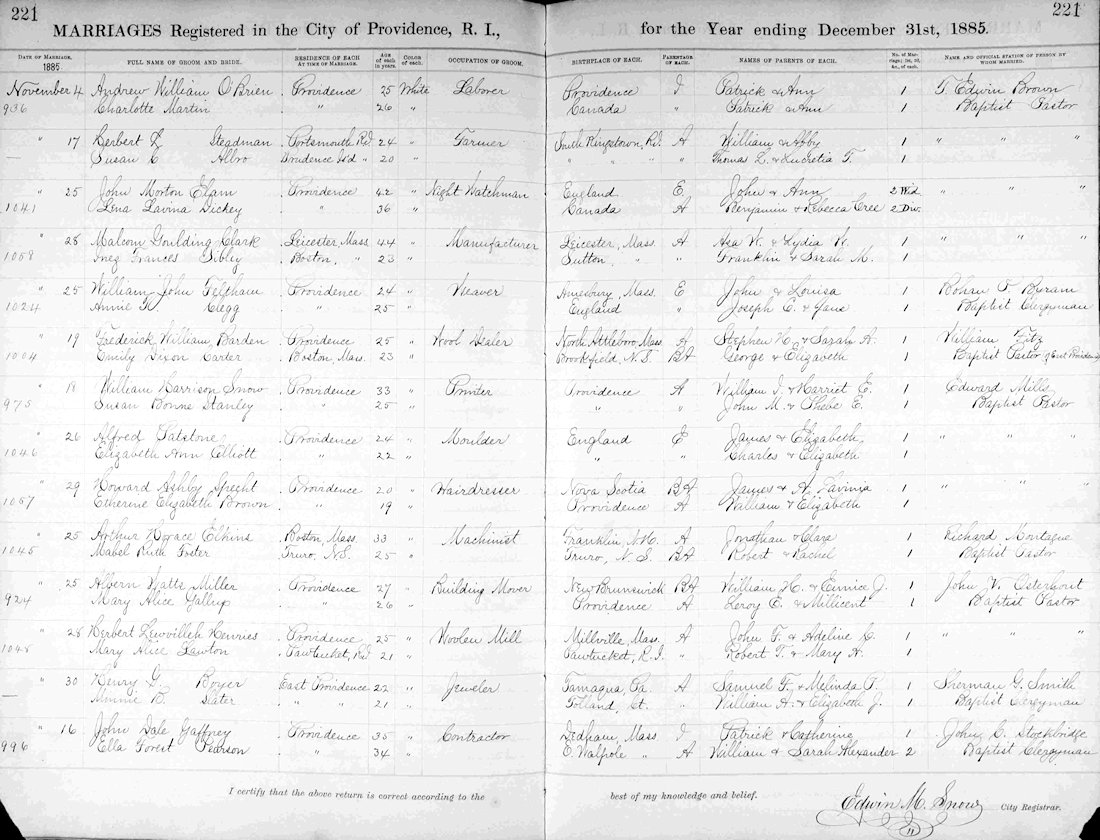 221
221
MARRIAGES Registered in the City of Providence, R. I., for the Year ending December 31st, 1885.
DATE OF MARRIAGE. 1885 FULL NAME OF GROOM AND BRIDE. RESIDENCE OF EACH AT TIME OF MARRIAGE. AGE of each in years. COLOR of each. OCCUPATION OF GROOM. BIRTHPLACE OF EACH. PARENTAGE OF EACH. NAMES OF PARENTS OF EACH. No. of Marriage; 1st, 2d, &c., of each. NAME AND OFFICIAL STATION OF PERSON BY WHOM MARRIED.
November 4 Andrew William O'Brien Providence 25 White Laborer Providence I Patrick & Ann 1 T. Edwin Brown
936 Charlotte Martin " 26 " Canada " Patrick & Ann 1 Baptist Pastor
" 17 Herbert L Steadman Portsmouth R.I. 24 " Farmer South Kingstown, R.I. A William & Abby 1 " " "
— Susan E Albro Prudence Isl'd " 20 " " " " " Thomas L. & Lucretia T. 1
" 25 John Morton Elam Providence 42 " Night Watchman England E John & Ann 2 Wid. " " "
1041 Lena Lavina Dickey " 36 " Canada A Benjamin & Rebecca Cree 2 Div.
" 28 Malcom Goulding Clark Leicester, Mass 44 " Manufacturer Leicester, Mass. A Asa W. & Lydia W. 1 " " "
1058 Inez Frances Sibley Boston, " 23 " Sutton " " Franklin & Sarah M. 1
" 25 William John Feltham Providence 24 " Weaver Amesbury, Mass. E John & Louisa 1 Rohan F. Byram
1024 Annie H. Clegg " 25 " England " Joseph E. & Jane 1 Baptist Clergyman
" 19 Frederick William Barden Providence 25 " Wool Dealer North Attleboro, Mass A Stephen W. & Sarah A. 1 William Fitz
1004 Emily Dixon Carter Boston Mass. 23 " Brookfield, N.S. BA George & Elizabeth 1 Baptist Pastor of East Providence
" 18 William Harrison Snow Providence 33 " Printer Providence A William I. & Harriet E. 1 Edward Mills
975 Susan Bonne Stanley " 25 " " " John M. & Phebe E. 1 Baptist Pastor
" 26 Alfred Batstone Providence 24 " Moulder England E James & Elizabeth 1 " " "
1046 Elizabeth Ann Elliott " 22 " " " Charles & Elizabeth 1
" 29 Howard Ashby Specht Providence 20 " Hairdresser Nova Scotia BA James & A. Lavinia 1 " " "
1057 Etherine Elizabeth Brown " 19 " Providence A William & Elizabeth 1
" 25 Arthur Horace Elkins Boston Mass. 33 " Machinist Franklin, N.H. A Jonathan & Clara 1 Richard Montague
1045 Mabel Ruth Foster Truro, N.S. 25 " Truro, N. S. BA Robert & Rachel 1 Baptist Pastor
" 25 Albern Watts Miller Providence 27 " Building Mover New Brunswick BA William H. & Eunice J. 1 John V. Osterhout
924 Mary Alice Gallup " 26 " Providence A Leroy E. & Millicent 1 Baptist Pastor
" 28 Herbert Hennies Providence 25 " Woolen Mill Millville, Mass. A John F. & Adeline C. 1 " " "
1048 Mary Alice Lawton Pawtucket, R.I. 21 " Pawtucket, R. I. " Robert T. & Mary A. 1
" 30 Henry G. Boyer East Providence 22 " Jeweler Tamaqua, Pa. A Samuel F. & Melinda P. 1 Sherman G. Smith
— Minnie B. Slater " " 21 " Tolland, Ct. " William H. & Elizabeth J. 1 Baptist Clergyman
" 16 John Dale Gaffney Providence 35 " Contractor Dedham, Mass I Patrick & Catherine 1 John C. Stockbridge
996 Ella Forest Pearson " 34 " E Walpole " A William & Sarah Alexander 2 Baptist Clergyman
I certify that the above return is correct according to the best of my knowledge and belief.
Edwin M. Snow City Registrar.